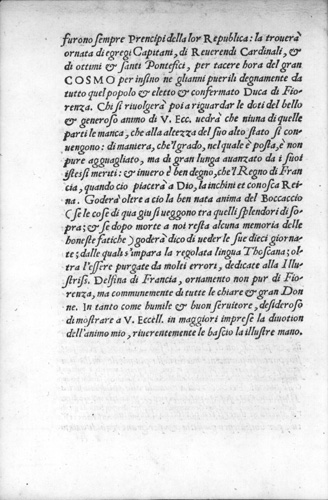 furono sempre Prencipi della lor Republica: la trouerà
ornata di egregi Capitani, di Reuerendi Cardinali, &
di ottimi & santi Pontefici, per tacere hora del gran
COSMO per insino ne glianni puerili degnamente da
tutto quel popolo eletto & confermato Duca di Fio-
renza. Chi si riuolgerà poi a riguardar le doti del bello
& generoso animo di V. Ecc. uedrà che niuna di quelle
parti le manca, che alla altezza del suo alto stato si con-
uengono: di maniera, che'l grado, nel quale è posta, è non
pure agguagliato, ma di gran lunga auanzato da i suoi
istessi meriti: & inuero è ben degno, che'l Regno di Fran
cia, quando cio piacerà a Dio, la inchini et conosca Rei-
na. Goderà oltre a cio la ben nata anima del Boccaccio
(se le cose di qua giu si ueggono tra quelli splendori di so-
pra; & se dopo morte a noi resta alcuna memoria delle
honeste fatiche) goderà dico di ueder le sue dieci giorna-
te; dalle quali s'impara la regolata lingua Thoscana; ol-
tra l'essere purgate da molti errori, dedicate alla Illu-
striss. Delfina di Francia, ornamento non pur di Fio-
renza, ma communemente di tutte le chiare & gran Don
ne. In tanto come humile & buon seruitore, desideroso
di mostrare a V. Eccell. in maggiori imprese la diuotion
dell'animo mio, riuerentemente le bascio la illustre mano.